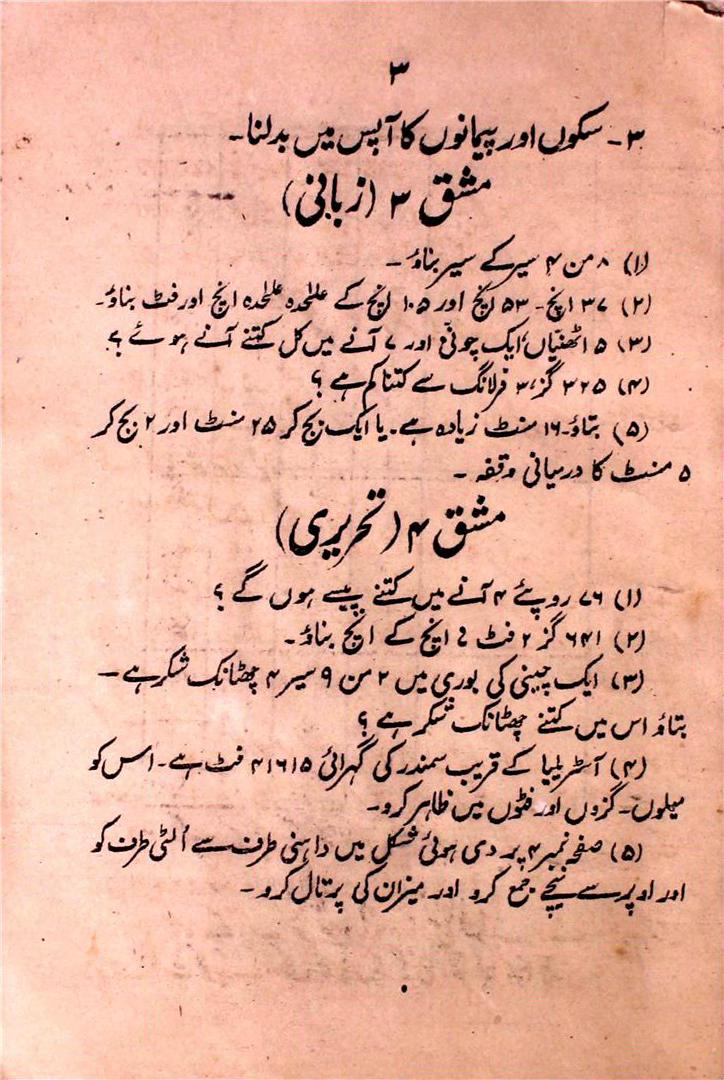 ۳
۳۔ سکوں اور پیمانوں کا آپس میں بدلنا۔
مشق ۳ (زبانی)
(۱) ۸ من ۴ سیر کے سیر بناؤ۔
(۲) ۳۷ انچ۔ ۵۳ انچ اور ۱۰۵ انچ کے علٰحدہ علٰحدہ انچ اور فٹ بناؤ۔
(۳) ۵ اٹھنیاں، ایک چونّی اور ۷ آنے میں کل کتنے آنے ہوئے؟
(۴) ۳۲۵ گز، ۳ فرلانگ سے کتنا کم ہے؟
(۵) بتاؤ۔ ۱۶ منٹ زیادہ ہے۔ یا ایک بج کر ۲۵ منٹ اور ۲ بج کر
۵ منٹ کا درمیانی وقفہ۔
مشق ۴ (تحریری)
(۱) ۷۶ روپئے ۴ آنے میں کتنے پیسے ہوں گے؟
(۲) ۶۴۱ گز ۲ فٹ ۹ انچ کے انچ بناؤ۔
(۳) ایک چینی کی بوری میں ۲ من ۹ سیر ۴ چھٹانک شکر ہے۔
بتاؤ اس میں کتنے چھٹانک شکر ہے؟
(۴) آسٹریلیا کے قریب سمندر کی گہرائی ۴۱۶۱۵ فٹ ہے۔ اس کو
میلوں۔ گزوں اور فٹوں میں ظاہر کرو۔
(۵) صفحہ نمبر ۴ پر دی ہوئی شکل میں داہنی طرف سے اُلٹی طرف کو
اور اوپر سے نیچے جمع کرو اور میزان کی پرتال کرو۔